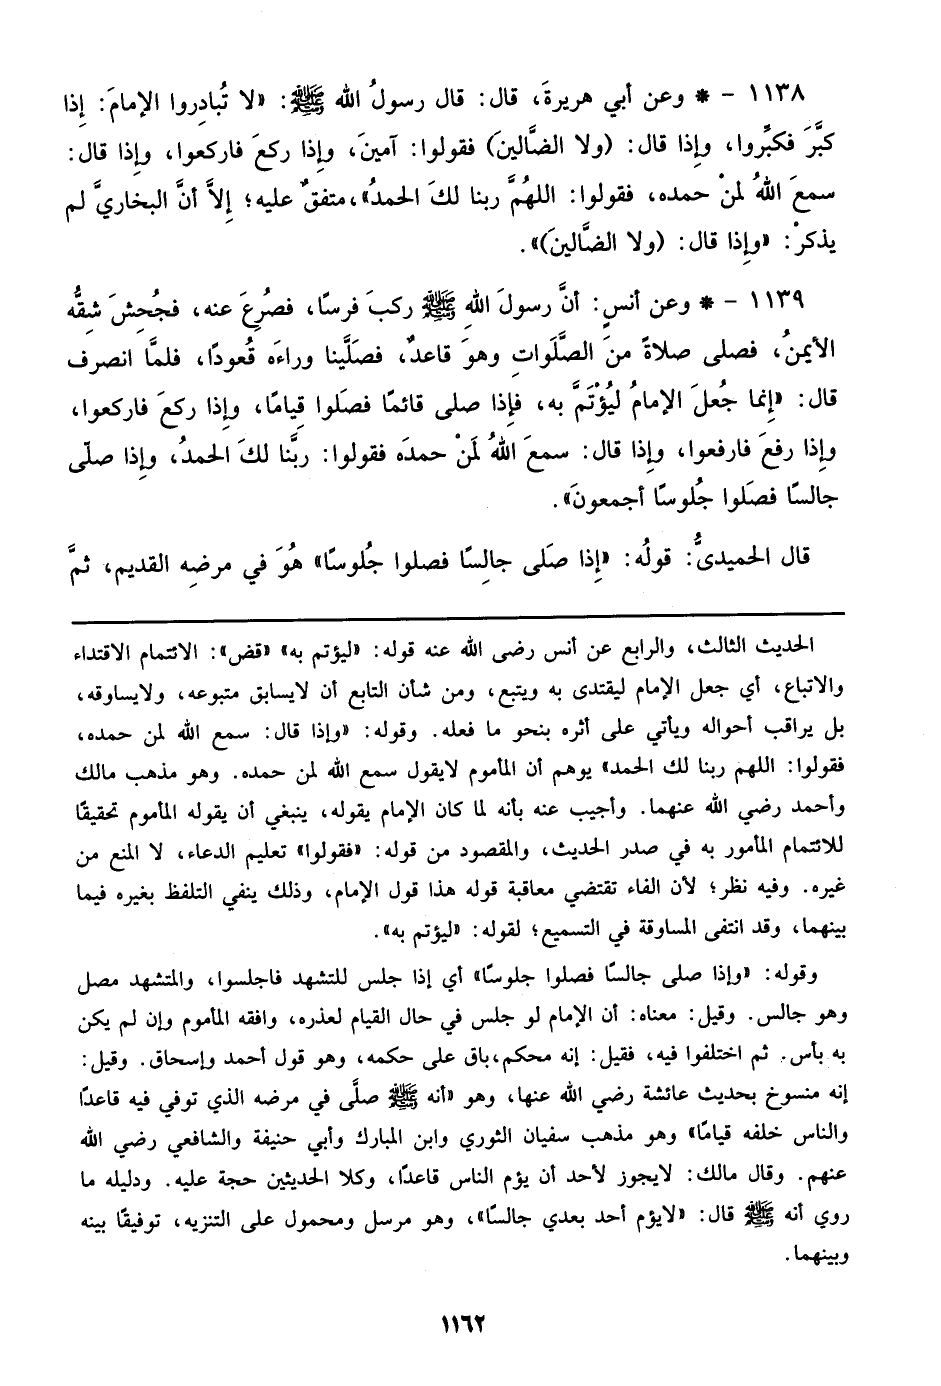 ١١٣٨ - * وعن أبي هريرةَ، قال: قال رسولُ الله ﷺ: «لا تُبادِروا الإمامَ: إِذا
كبَّرَ فكبِّروا، وإِذا قال: (ولا الضَّالينَ) فقولوا: آمينَ، وإِذا ركعَ فاركعوا، وإِذا قال:
سمعَ اللهُ لمنْ حمده، فقولوا: اللهُمَّ ربنا لكَ الحمدُ»،متفقٌ عليه؛ إِلاَّ أنَّ البخاريَّ لم
يذكرْ: «وإِذا قال: (ولا الضَّالينَ)».
١١٣٩ - * وعن أنسٍ: أنَّ رسولَ اللهِ ﷺ ركبَ فرسًا، فصُرِعَ عنه، فجُحِشَ شِقُّه
الأيمنُ، فصلى صلاةً منَ الصَّلَواتِ وهوَ قاعدٌ، فصَلَّينا وراءَه قُعودًا، فلمَّا انصرف
قال: «إِنما جُعلَ الإمامُ ليُؤتَمَّ به، فإِذا صلى قائمًا فصَلوا قِيامًا، وإِذا ركعَ فاركعوا،
وإِذا رفعَ فارفعوا، وإِذا قال: سمعَ اللهُ لمَنْ حمدَه فقولوا: ربَّنا لكَ الحمدُ، وإِذا صلّى
جالسًا فصَلوا جُلوسًا أجمعونَ».
قال الحميدىُّ: قولُه: «إِذا صَلى جالِسًا فصلوا جُلوسًا» هُوَ في مرضِه القديم، ثمَّ
الحديث الثالث، والرابع عن أنس رضى الله عنه قوله: «ليؤتم به» «قض»: الائتمام الاقتداء
والاتباع، أي جعل الإمام ليقتدى به ويتبع، ومن شأن التابع أن لايسابق متبوعه، ولايساوقه،
بل يراقب أحواله ويأتي على أثره بنحو ما فعله. وقوله: «وإذا قال: سمع الله لمن حمده،
فقولوا: اللهم ربنا لك الحمد» يوهم أن المأموم لايقول سمع الله لمن حمده. وهو مذهب مالك
وأحمد رضي الله عنهما. وأجيب عنه بأنه لما كان الإمام يقوله، ينبغي أن يقوله المأموم تحقيقًا
للائتمام المأمور به في صدر الحديث، والمقصود من قوله: «فقولوا» تعليم الدعاء، لا المنع من
غيره. وفيه نظر؛ لأن الفاء تقتضي معاقبة قوله هذا قول الإمام، وذلك ينفي التلفظ بغيره فيما
بينهما، وقد انتفى المساوقة في التسميع؛ لقوله: «ليؤتم به».
وقوله: «وإذا صلى جالسًا فصلوا جلوسًا» أي إذا جلس للتشهد فاجلسوا، والمتشهد مصل
وهو جالس. وقيل: معناه: أن الإمام لو جلس في حال القيام لعذره، وافقه المأموم وإن لم يكن
به بأس. ثم اختلفوا فيه، فقيل: إنه محكم،باق على حكمه، وهو قول أحمد وإسحاق. وقيل:
إنه منسوخ بحديث عائشة رضي الله عنها، وهو «أنه ﷺ صلَّى في مرضه الذي توفي فيه قاعدًا
والناس خلفه قيامًا» وهو مذهب سفيان الثوري وابن المبارك وأبي حنيفة والشافعي رضي الله
عنهم. وقال مالك: لايجوز لأحد أن يؤم الناس قاعدًا، وكلا الحديثين حجة عليه. ودليله ما
روي أنه ﷺ قال: «لايؤم أحد بعدي جالسًا»، وهو مرسل ومحمول على التنزيه، توفيقًا بينه
وبينهما.
١١٦٢